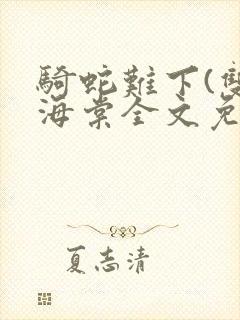 騎蛇難下(雙
海棠全文免
夏志清